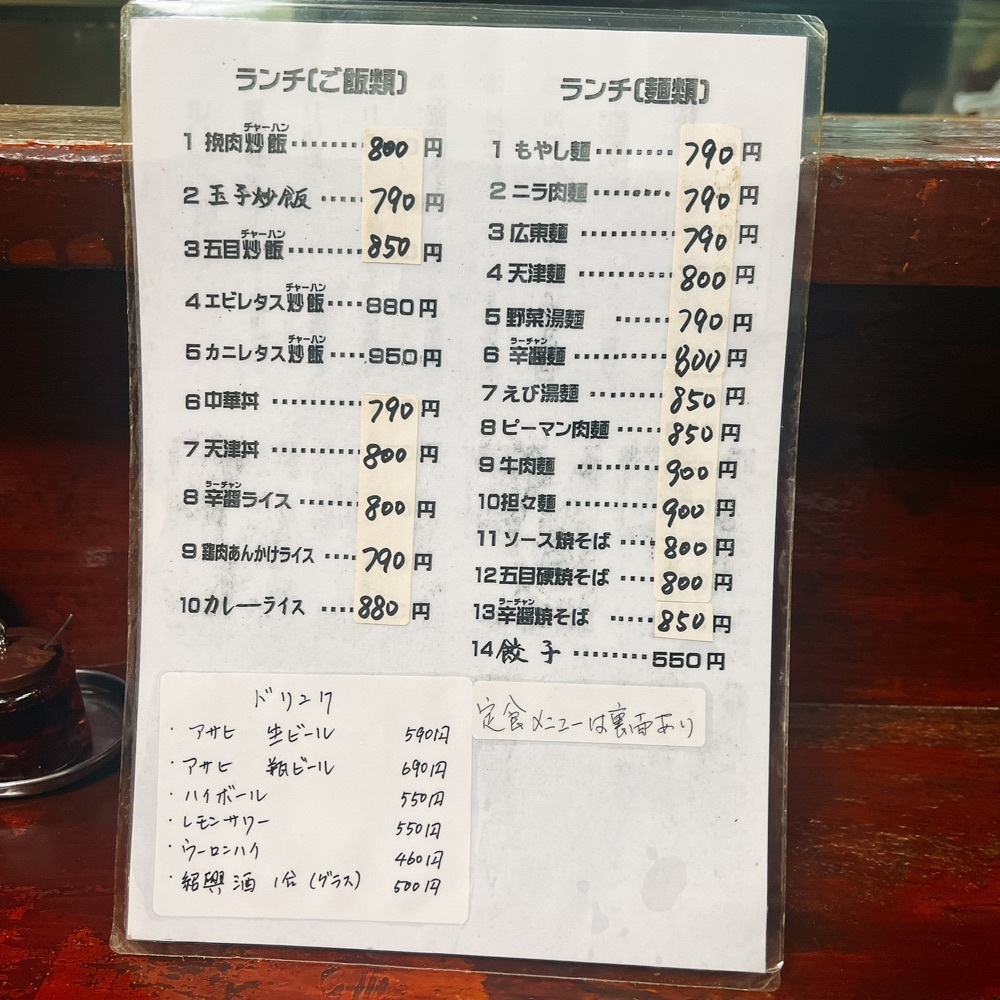 ランチ(ご飯類)
チャーハン
1 挽肉炒飯········800円
2 玉子炒飯·····790円
チャーハン
3 五目炒飯········850円
チャーハン
4 エビレタス炒飯····880円
チャーハン
5 カニレタス炒飯····950円
6 中華丼··········790円
7 天津丼··········800円
ラーチャン
8 辛醤ライス·······800円
9 鶏肉あんかけライス····790円
10 カレーライス ····880円
ランチ(麺類)
1 もやし麺·········790円
2 ニラ肉麺·········790円
3 広東麺··········790円
4 天津麺··········800円
5 野菜湯麺 ······790円
ラーチャン
6 辛醤麺··········800円
7 えび湯麺·········850円
8 ピーマン肉麺·····850円
9 牛肉麺 ········900円
10 担々麺·········900円
11 ソース焼そば·····800円
12 五目硬焼そば·····800円
ラーチャン
13 辛醤焼そば ·····850円
14 餃子·········550円
ドリンク
・アサヒ 生ビール 590円
・アサヒ 瓶ビール 690円
・ハイボール 550円
・レモンサワー 550円
・ウーロンハイ 460円
・紹興酒 1合(グラス) 500円
定食メニューは裏面あり